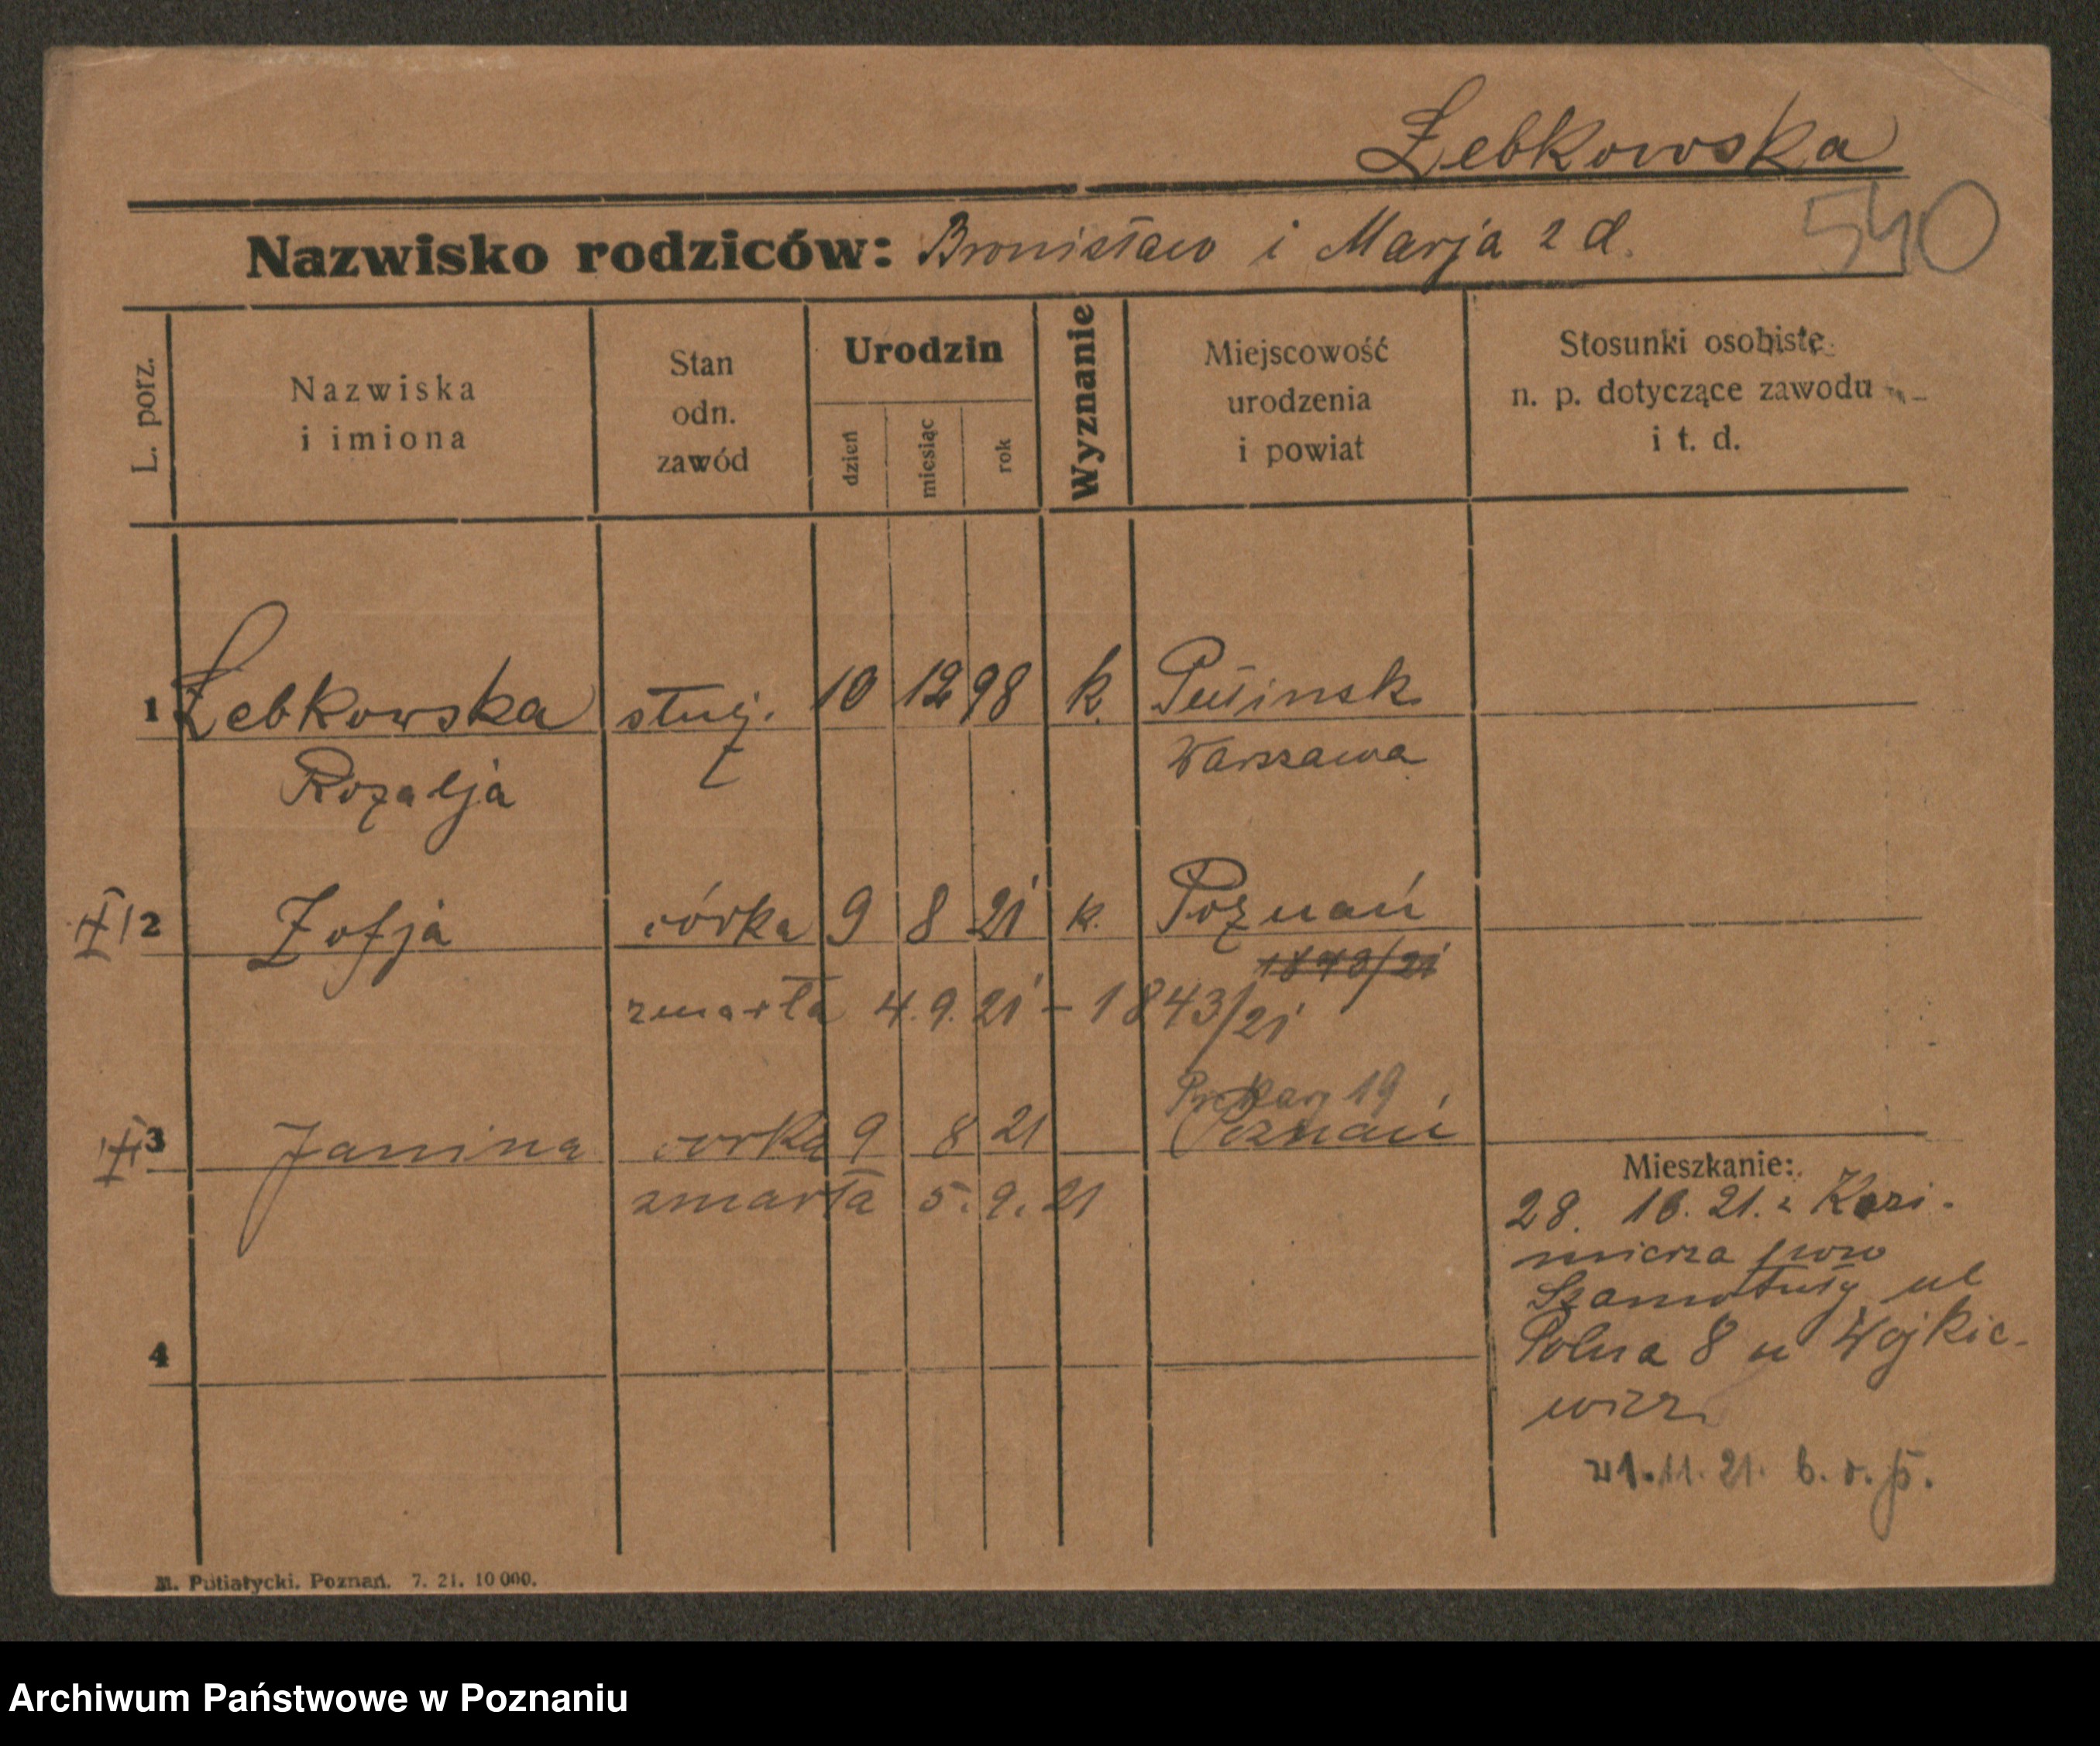 Łebkowska
540
Nazwisko rodziców: Bronisław i Marja z d.
L. porz.
Nazwiska
i imiona
Stan
odn.
zawód
Urodzin
dzień
miesiąc
rok
Wyznanie
Miejscowość
urodzenia
i powiat
Stosunki osobiste
n. p. dotyczące zawodu
i t. d.
1 Łebkowska służ. 10 12 98 k.
Rozalja Warszawa
2 Zofja córka 9 8 21 k. Poznań
1843/21
zmarła 4. 9. 21 – 1843/21
19
3 Janina córka 9 8 21 Poznań
zmarła 5. 9. 21
Mieszkanie:
28. 10. 21. z Kazi-
mierza pow
Szamotuły ul
Polna 8 u Wojkie-
wicz
11. 21. b. o. p.
4
M. Putiatycki. Poznań. 7. 21. 10 000.
Archiwum Państwowe w Poznaniu